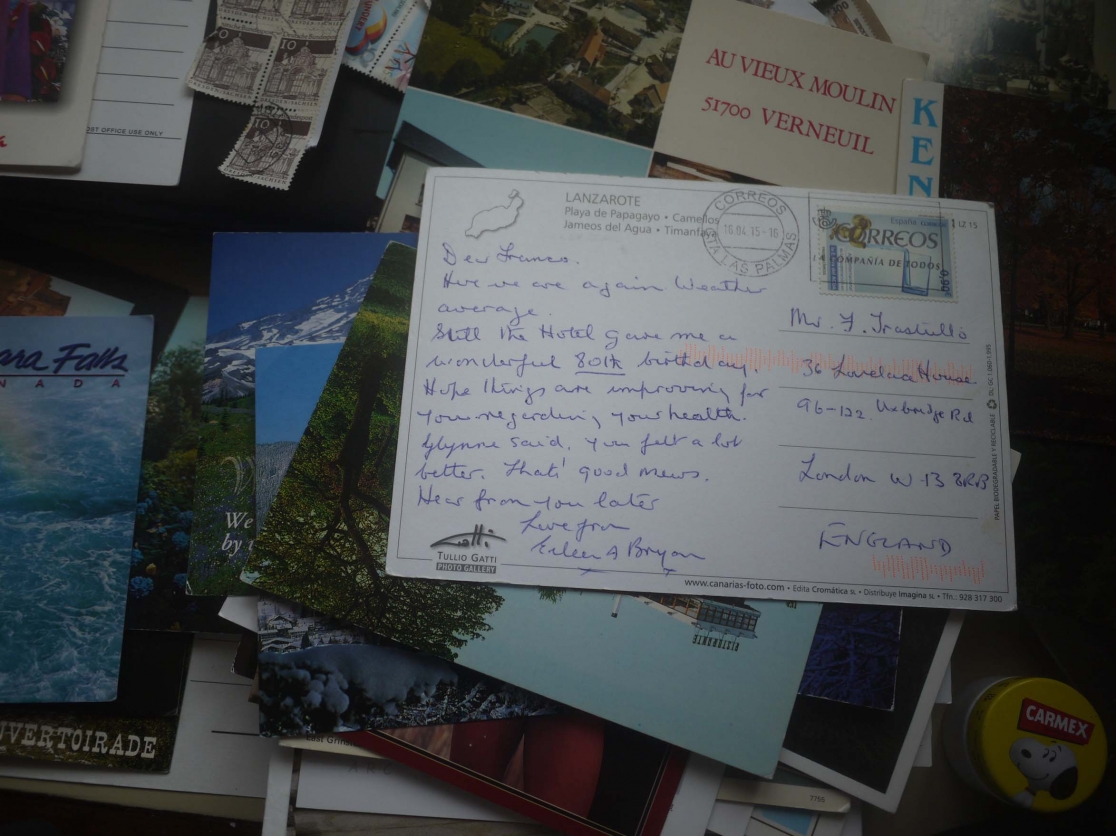 POST OFFICE USE ONLY
10
10
10
AU VIEUX MOULIN
51700 VERNEUIL
KEN
LANZAROTE
Playa de Papagayo • Camellos
Jameos del Agua • Timanfaya
CORREOS
10.04.15-16
LAS PALMAS
España CORREOS
CORREOS
LA COMPAÑIA DE TODOS
Dear Franco.
Here we are again Weather
average.
Still the Hotel gave me a
wonderful 80th birthday.
Hope things are improving for
you regarding your health.
Glynne said. You felt a lot
better. That' good news.
Hear from you later
Love from
Eileen A Bryan
Mr. F. Trastullo
36 Lovelace House
96-122 Uxbridge Rd
London W-13 8RB
ENGLAND
PAPEL BIODEGRADABLE Y RECICLABLE
TULLIO GATTI
PHOTO GALLERY
www.canarias-foto.com • Edita Cromática SL • Distribuye Imagina SL • Tfn.: 928 317 300
ara Falls
NADA
We
by
RISTORANTE
UVERTOIRADE
East Grins
7756
CARMEX